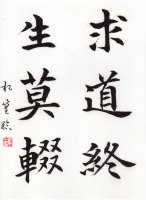 求道終
生莫輟